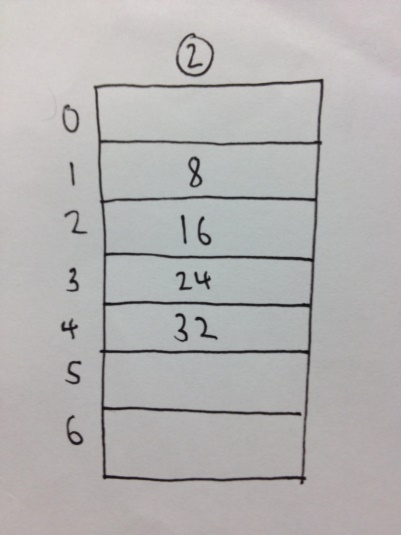 2
0
1 8
2 16
3 24
4 32
5
6